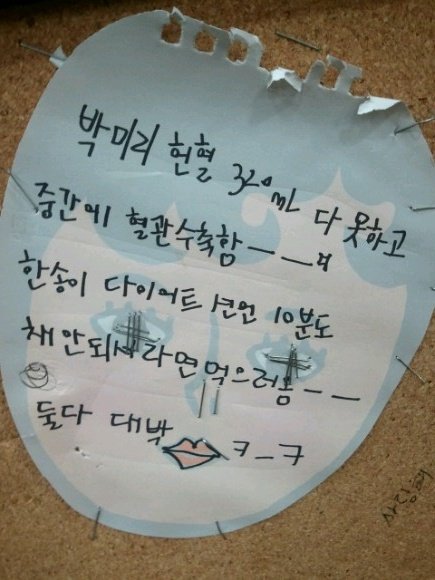 박미리 헌혈 320mL 다 못하고
중간에 혈관수축함ㅡㅡㅋ
한송이 다이어트 선언 10분도
채 안되서 라면 먹으러옴ㅡㅡ
둘다 대박 ㅋㅡㅋ
사랑해